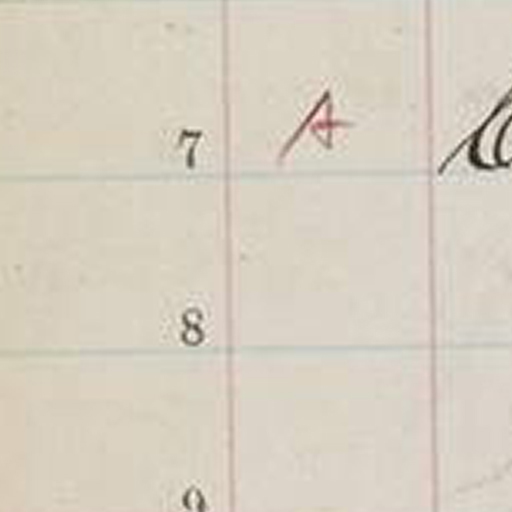 7 A
8
9